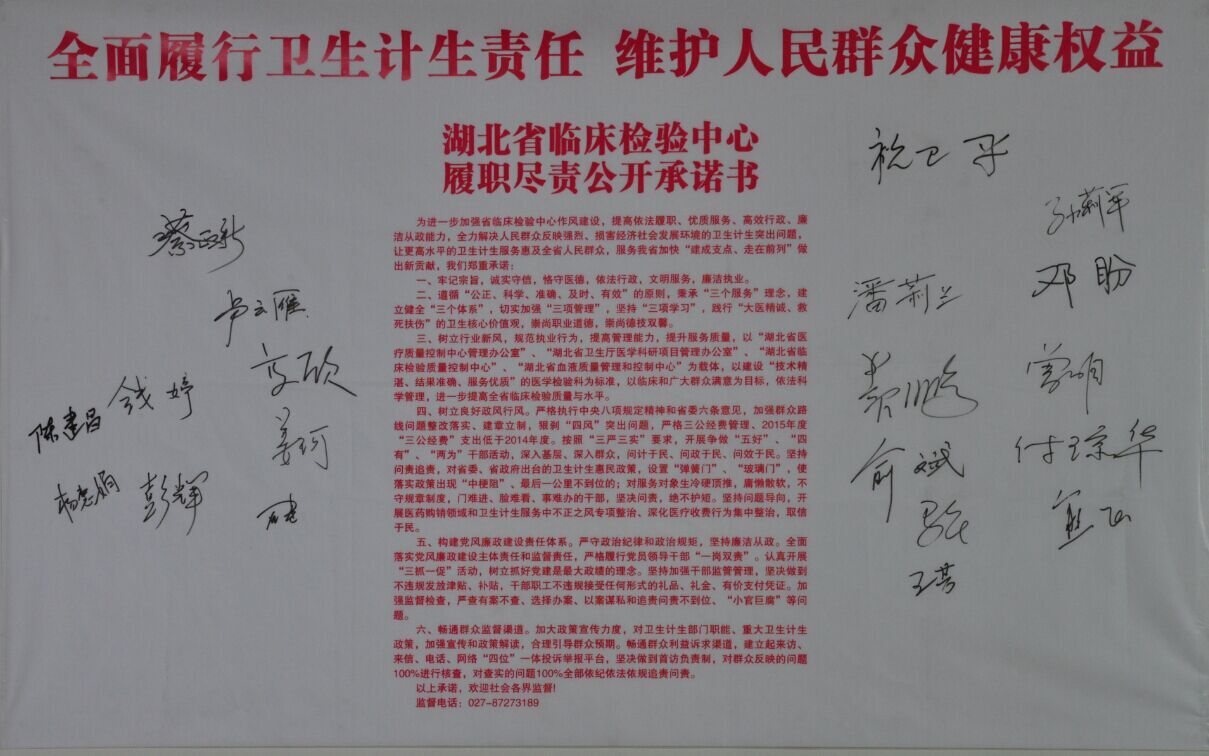 全面履行卫生计生责任 维护人民群众健康权益
湖北省临床检验中心
履职尽责公开承诺书
为进一步加强省临床检验中心作风建设，提高依法履职、优质服务、高效行政、廉
洁从政能力，全力解决人民群众反映强烈、损害经济社会发展环境的卫生计生突出问题，
让更高水平的卫生计生服务惠及全省人民群众，服务我省加快“建成支点、走在前列”做
出新贡献，我们郑重承诺：
一、牢记宗旨，诚实守信，恪守医德，依法行政，文明服务，廉洁执业。
二、遵循“公正、科学、准确、及时、有效”的原则，秉承“三个服务”理念，建
立健全“三个体系”，切实加强“三项管理”，坚持“三项学习”，践行“大医精诚、救
死扶伤”的卫生核心价值观，崇尚职业道德，崇尚德技双馨。
三、树立行业新风，规范执业行为，提高管理能力，提升服务质量，以“湖北省医
疗质量控制中心管理办公室”、“湖北省卫生厅医学科研项目管理办公室”、“湖北省临
床检验质量控制中心”、“湖北省血液质量管理和控制中心”为载体，以建设“技术精
湛、结果准确、服务优质”的医学检验科为标准，以临床和广大群众满意为目标，依法科
学管理，进一步提高全省临床检验质量与水平。
四、树立良好政风行风。严格执行中央八项规定精神和省委六条意见，加强群众路
线问题整改落实、建章立制，狠刹“四风”突出问题，严格三公经费管理、2015年度
“三公经费”支出低于2014年度。按照“三严三实”要求，开展争做“五好”、“四
有”、“两为”干部活动，深入基层、深入群众，问计于民、问政于民、问效于民。坚持
问责追责，对省委、省政府出台的卫生计生惠民政策，设置“弹簧门”、“玻璃门”，使
落实政策出现“中梗阻”、最后一公里不到位的；对服务对象生冷硬顶推，庸懒散软，不
守规章制度，门难进、脸难看、事难办的干部，坚决问责，绝不护短。坚持问题导向，开
展医药购销领域和卫生计生服务中不正之风专项整治、深化医疗收费行为集中整治，取信
于民。
五、构建党风廉政建设责任体系。严守政治纪律和政治规矩，坚持廉洁从政。全面
落实党风廉政建设主体责任和监督责任，严格履行党员领导干部“一岗双责”。认真开展
“三抓一促”活动，树立抓好党建是最大政绩的理念。坚持加强干部监管管理，坚决做到
不违规发放津贴、补贴，干部职工不违规接受任何形式的礼品、礼金、有价支付凭证。加
强监督检查，严查有案不查、选择办案、以案谋私和追责问责不到位、“小官巨腐”等问
题。
六、畅通群众监督渠道。加大政策宣传力度，对卫生计生部门职能、重大卫生计生
政策，加强宣传和政策解读，合理引导群众预期。畅通群众利益诉求渠道，建立起来访、
来信、电话、网络“四位”一体投诉举报平台，坚决做到首访负责制，对群众反映的问题
100%进行核查，对查实的问题100%全部依纪依法依规追责问责。
以上承诺，欢迎社会各界监督！
监督电话：027-87273189
祝卫平
孙莉军
邓盼
潘莉兰
曾明
俞斌
付琼华
王芳
钱婷
陈建昌
姜珂
彭辉